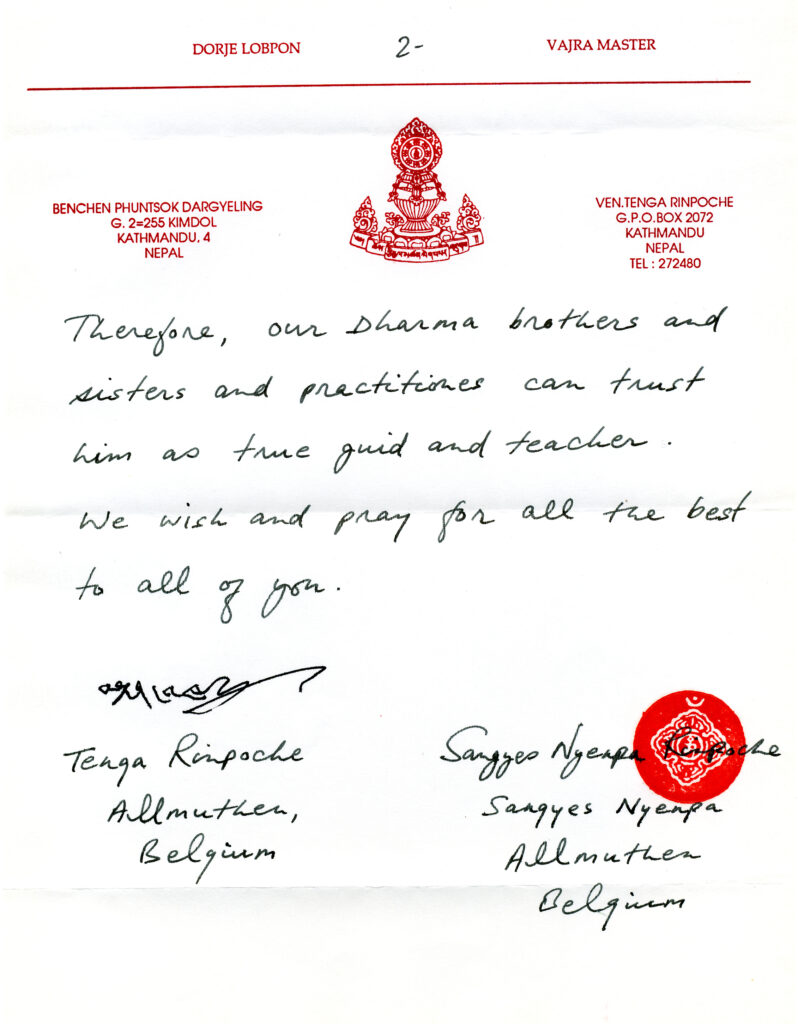 DORJE LOBPON 2- VAJRA MASTER
BENCHEN PHUNTSOK DARGYELING
G. 2=255 KIMDOL
KATHMANDU, 4
NEPAL
VEN.TENGA RINPOCHE
G.P.O.BOX 2072
KATHMANDU
NEPAL
TEL : 272480
Therefore, our Dharma brothers and
sisters and practitiones can trust
him as true guid and teacher.
We wish and pray for all the best
to all of you.
Tenga Rinpoche
Allmuthen,
Belgium
Sangyes Nyenpa Rinpoche
Sangyes Nyenpa
Allmuthen
Belgium